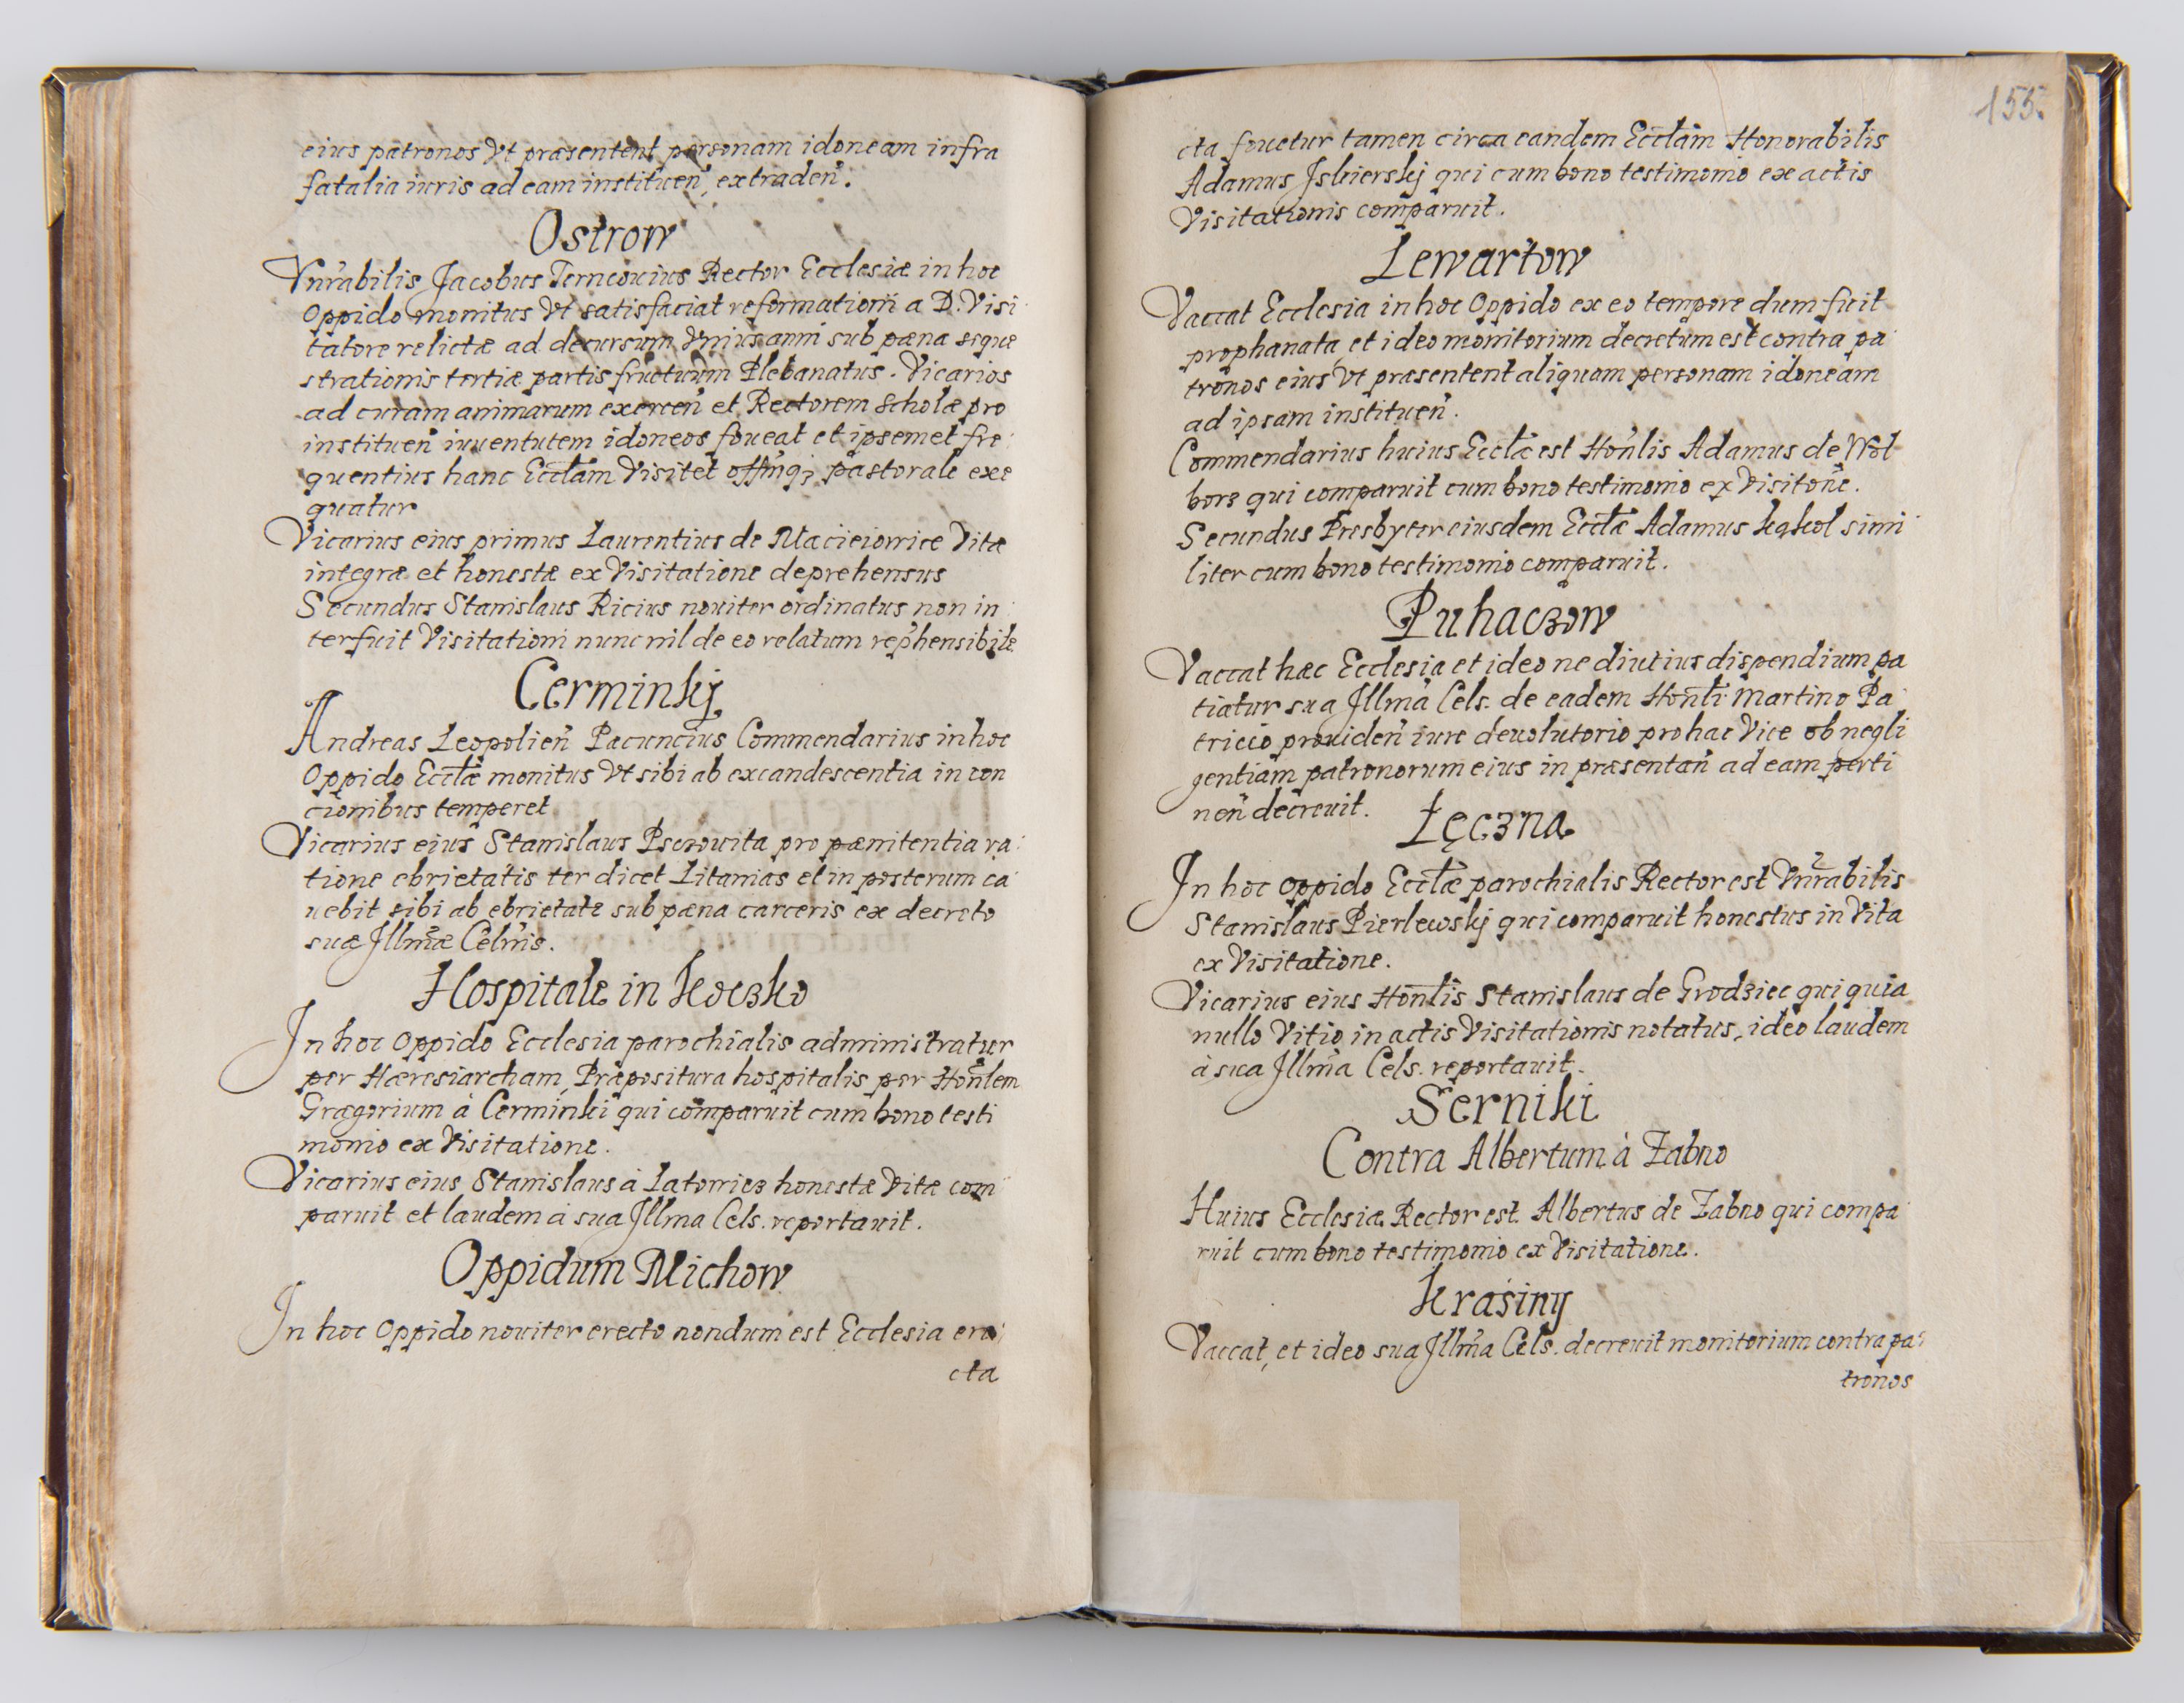 eius patronos vt præsentent personam idoneam infra
fatalia iuris ad eam instituen̄, extraden̄.
Ostrow
Vnr̄abilis Jacobus Ternconius Rector Ecclesiæ in hoc
Oppido monitus vt satisfaciat reformationi a D. Visi
tatore relictæ ad decursum vnius anni sub pæna seque
strationis tertiæ partis fructuum Plebanatus. Vicarios
ad curam animarum exercen̄ et Rectorem scholæ pro
instituen̄ iuuentutem idoneos foueat et ipsemet fre
quentius hanc Eccl̄am Visitet offm̄q; pastorale exe
quatur
Vicarius eius primus Laurentius de Macieiowice Vitæ
integræ et honestæ ex Visitatione deprehensus
Secundus Stanislaus Ricius nouiter ordinatus non in
terfuit Visitationi nunc nil de eo relatum rep̄hensibile
Cerminkj
Andreas Leopolien̄ Pacuncius Commendarius in hoc
Oppido Eccl̄æ monitus vt sibi ab excandescentia in con
cionibus temperet
Vicarius eius Stanislaus Pserouita pro pænitentia ra
tione ebrietatis ter dicet Litanias et in posterum ca
uebit sibi ab ebrietate sub pæna carceris ex decreto
suæ Jllm̄æ Celn̄is.
Hospitale in Koczko
In hoc Oppido Ecclesia parochialis administratur
per Hæresiarcham, Præpositura hospitalis per Hon̄lem
Grægorium à Cerminki qui comparuit cum bono testi
monio ex Visitatione.
Vicarius eius Stanislaus à Latowicz honestæ Vitæ com
paruit et laudem à sua Jllma Cels. reportauit.
Oppidum Michow
In hoc Oppido nouiter erecto nondum est Ecclesia ere
cta
155.
cta fouetur tamen circa eandem Eccl̄am Honorabilis
Adamus Jskierskj qui cum bono testimonio ex actis
Visitationis comparuit.
Lewartow
Vaccat Ecclesia in hoc Oppido ex eo tempore dum fuit
prophanata, et ideo monitorium decretum est contra pa
tronos eius vt præsentent aliquam personam idoneam
ad ipsam instituen̄.
Commendarius huius Eccl̄æ est Hon̄lis Adamus de Wol
bors qui comparuit cum bono testimonio ex Visiton̄e.
Secundus Presbyter eiusdem Eccl̄æ Adamus Kąkol simi
liter cum bono testimonio comparuit.
Puhaczow
Vaccat hæc Ecclesia et ideo ne diutius dispendium pa
tiatur sua Jllma Cels. de eadem Hon̄li Martino Pa
tricio prouiden̄ iure deuolutorio pro hac Vice ob negli
gentiam patronorum eius in præsentan̄ ad eam perti
nen̄ decreuit.
Łęczna
In hoc Oppido Eccl̄æ parochialis Rector est Vnr̄abilis
Stanislaus Pierlewskj qui comparuit honestus in Vita
ex Visitatione.
Vicarius eius Hon̄lis Stanislaus de Grodziec qui quia
nullo Vitio in actis Visitationis notatus, ideo laudem
à sua Jllm̄a Cels. reportauit.
Serniki
Contra Albertum à Zabno
Huius Ecclesiæ Rector est Albertus de Zabno qui compa
ruit cum bono testimonio ex Visitatione.
Kraśiny
Vaccat, et ideo sua Jllm̄a Cels. decreuit monitorium contra pa
tronos